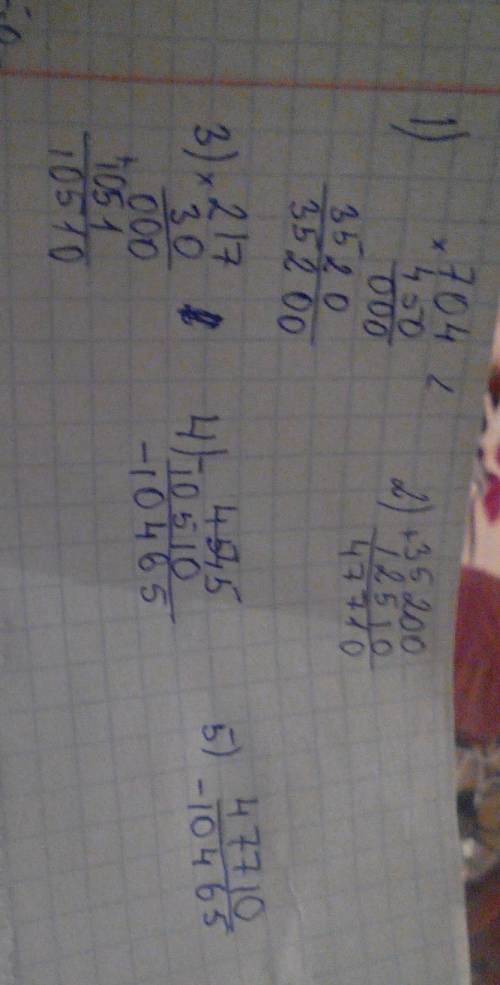 1)
× 704
450
000
3520
35200
2) +35200
12510
47710
3) × 217
30
000
+1051
10510
4) -
10510
-10465
5) 47710
-10465